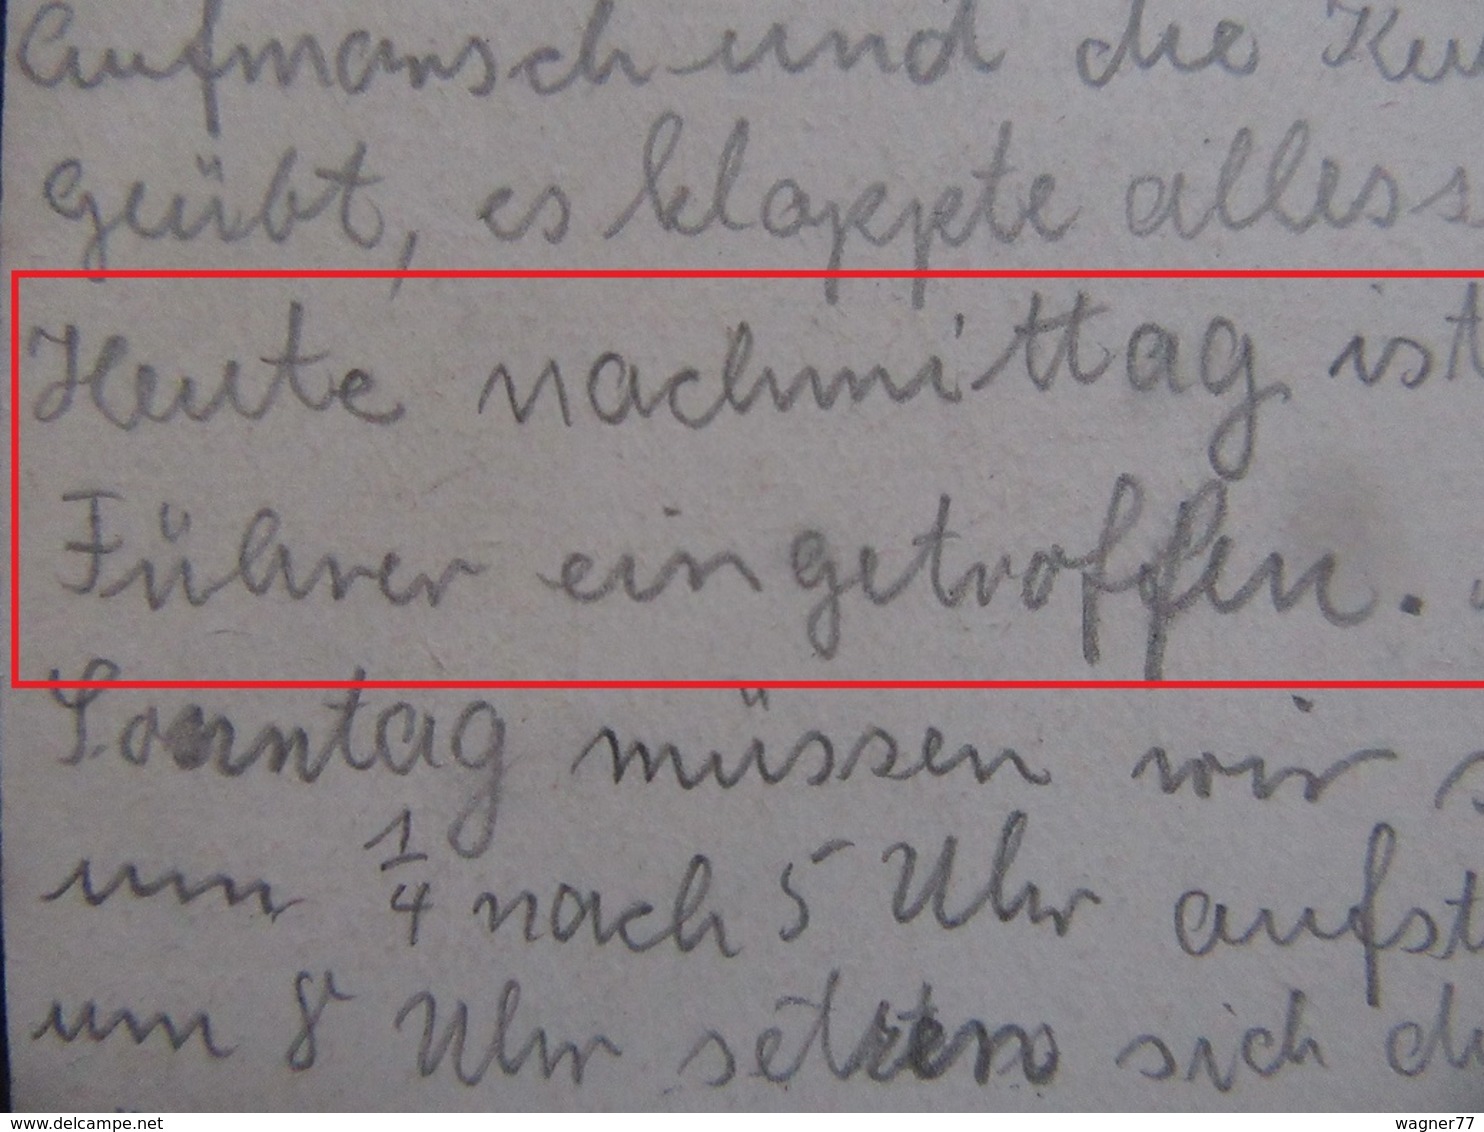 Aufmarsch und die Ku
geübt, es klappte alles s
Heute nachmittag ist
Führer eingetroffen.
Sonntag müssen wir s
um 1/4 nach 5 Uhr aufst
um 8 Uhr setzen sich di
www.delcampe.net
wagner77